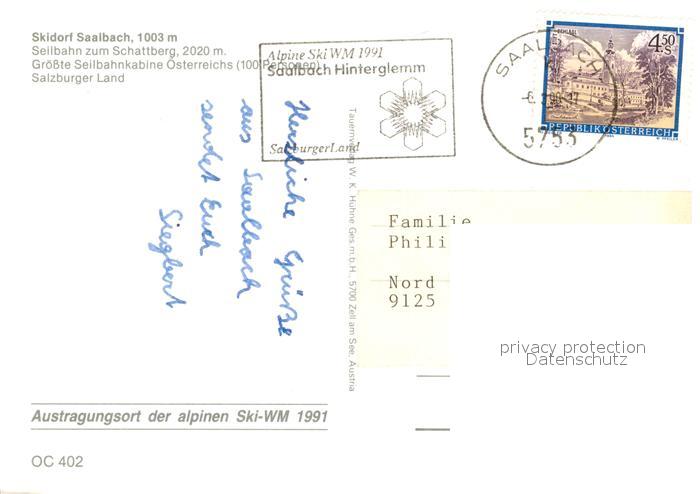 Skidorf Saalbach, 1003 m
Seilbahn zum Schattberg, 2020 m.
Größte Seilbahnkabine Österreichs (100 Personen)
Salzburger Land
Alpine Ski WM 1991
Saalbach Hinterglemm
SalzburgerLand
SAALBACH
5753
4.50 S
REPUBLIK ÖSTERREICH
Herzliche Grüße
aus Saalbach
sendet Euch
Siegbert
Tauernverlag W. K. Hühne Ges.m.b.H., 5700 Zell am See, Austria
Familie
Phili
Nord
9125
privacy protection
Datenschutz
Austragungsort der alpinen Ski-WM 1991
OC 402